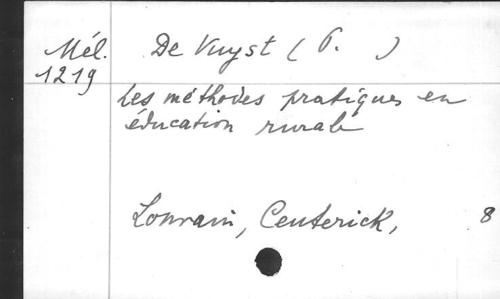 Mél. De Vuyst ( P. )
1219
Les méthodes pratiques en
éducation rurale
Louvain, Ceuterick, 8